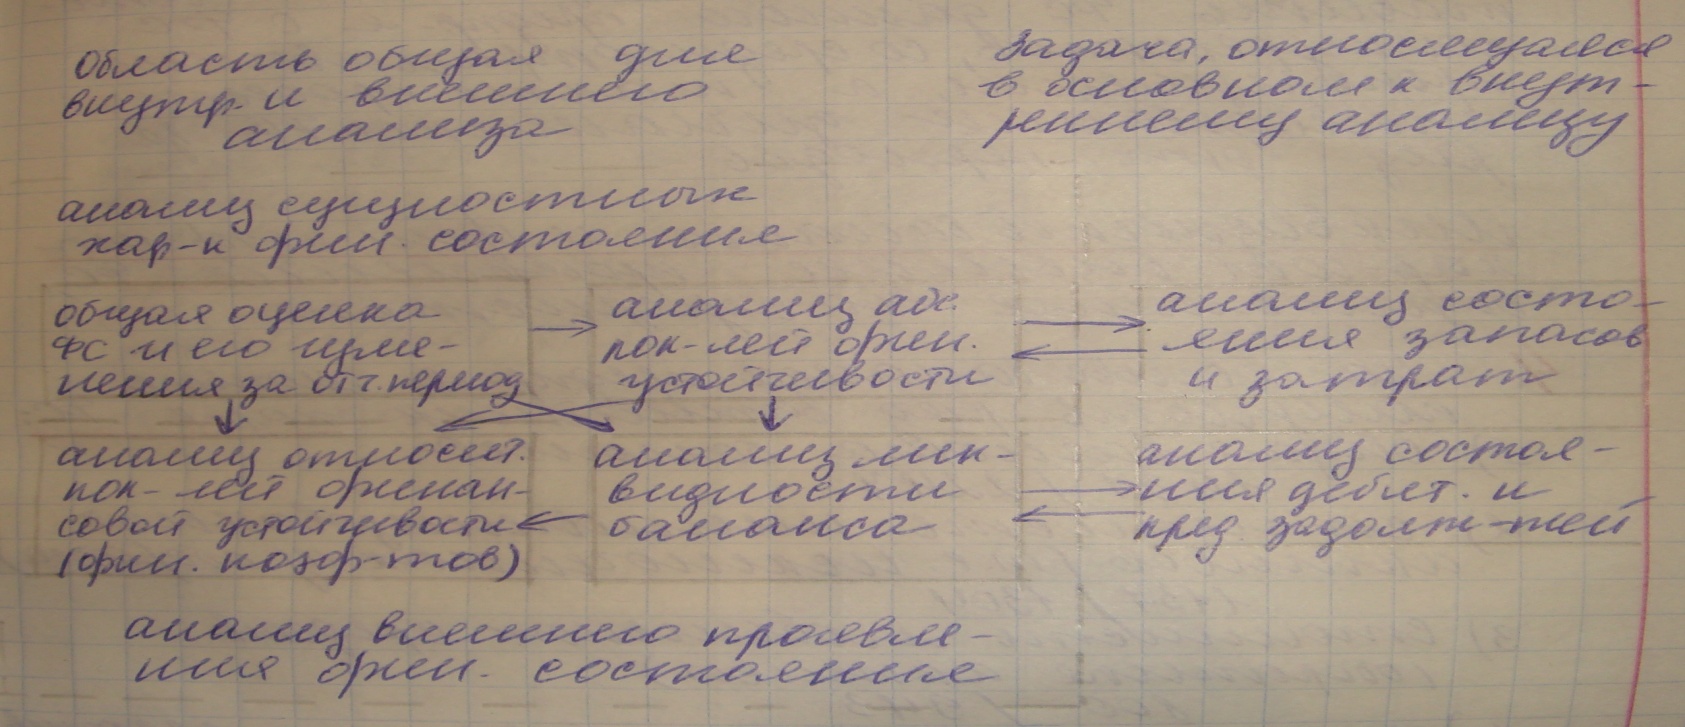 область общая для
внутр. и внешнего
анализа
Задача, относящаяся
в основном к внут-
реннему анализу
анализ сущностных
хар-к фин. состояния
общая оценка
ФС и его изме-
нения за отч. период
анализ абс.
пок-лей фин.
устойчивости
анализ состо-
яния запасов
и затрат
анализ относит.
пок-лей финан-
совой устойчивости
(фин. коэф-тов)
анализ лик-
видности
баланса
анализ состоя-
ния дебит. и
кред. задолж-тей
анализ внешнего проявле-
ния фин. состояния